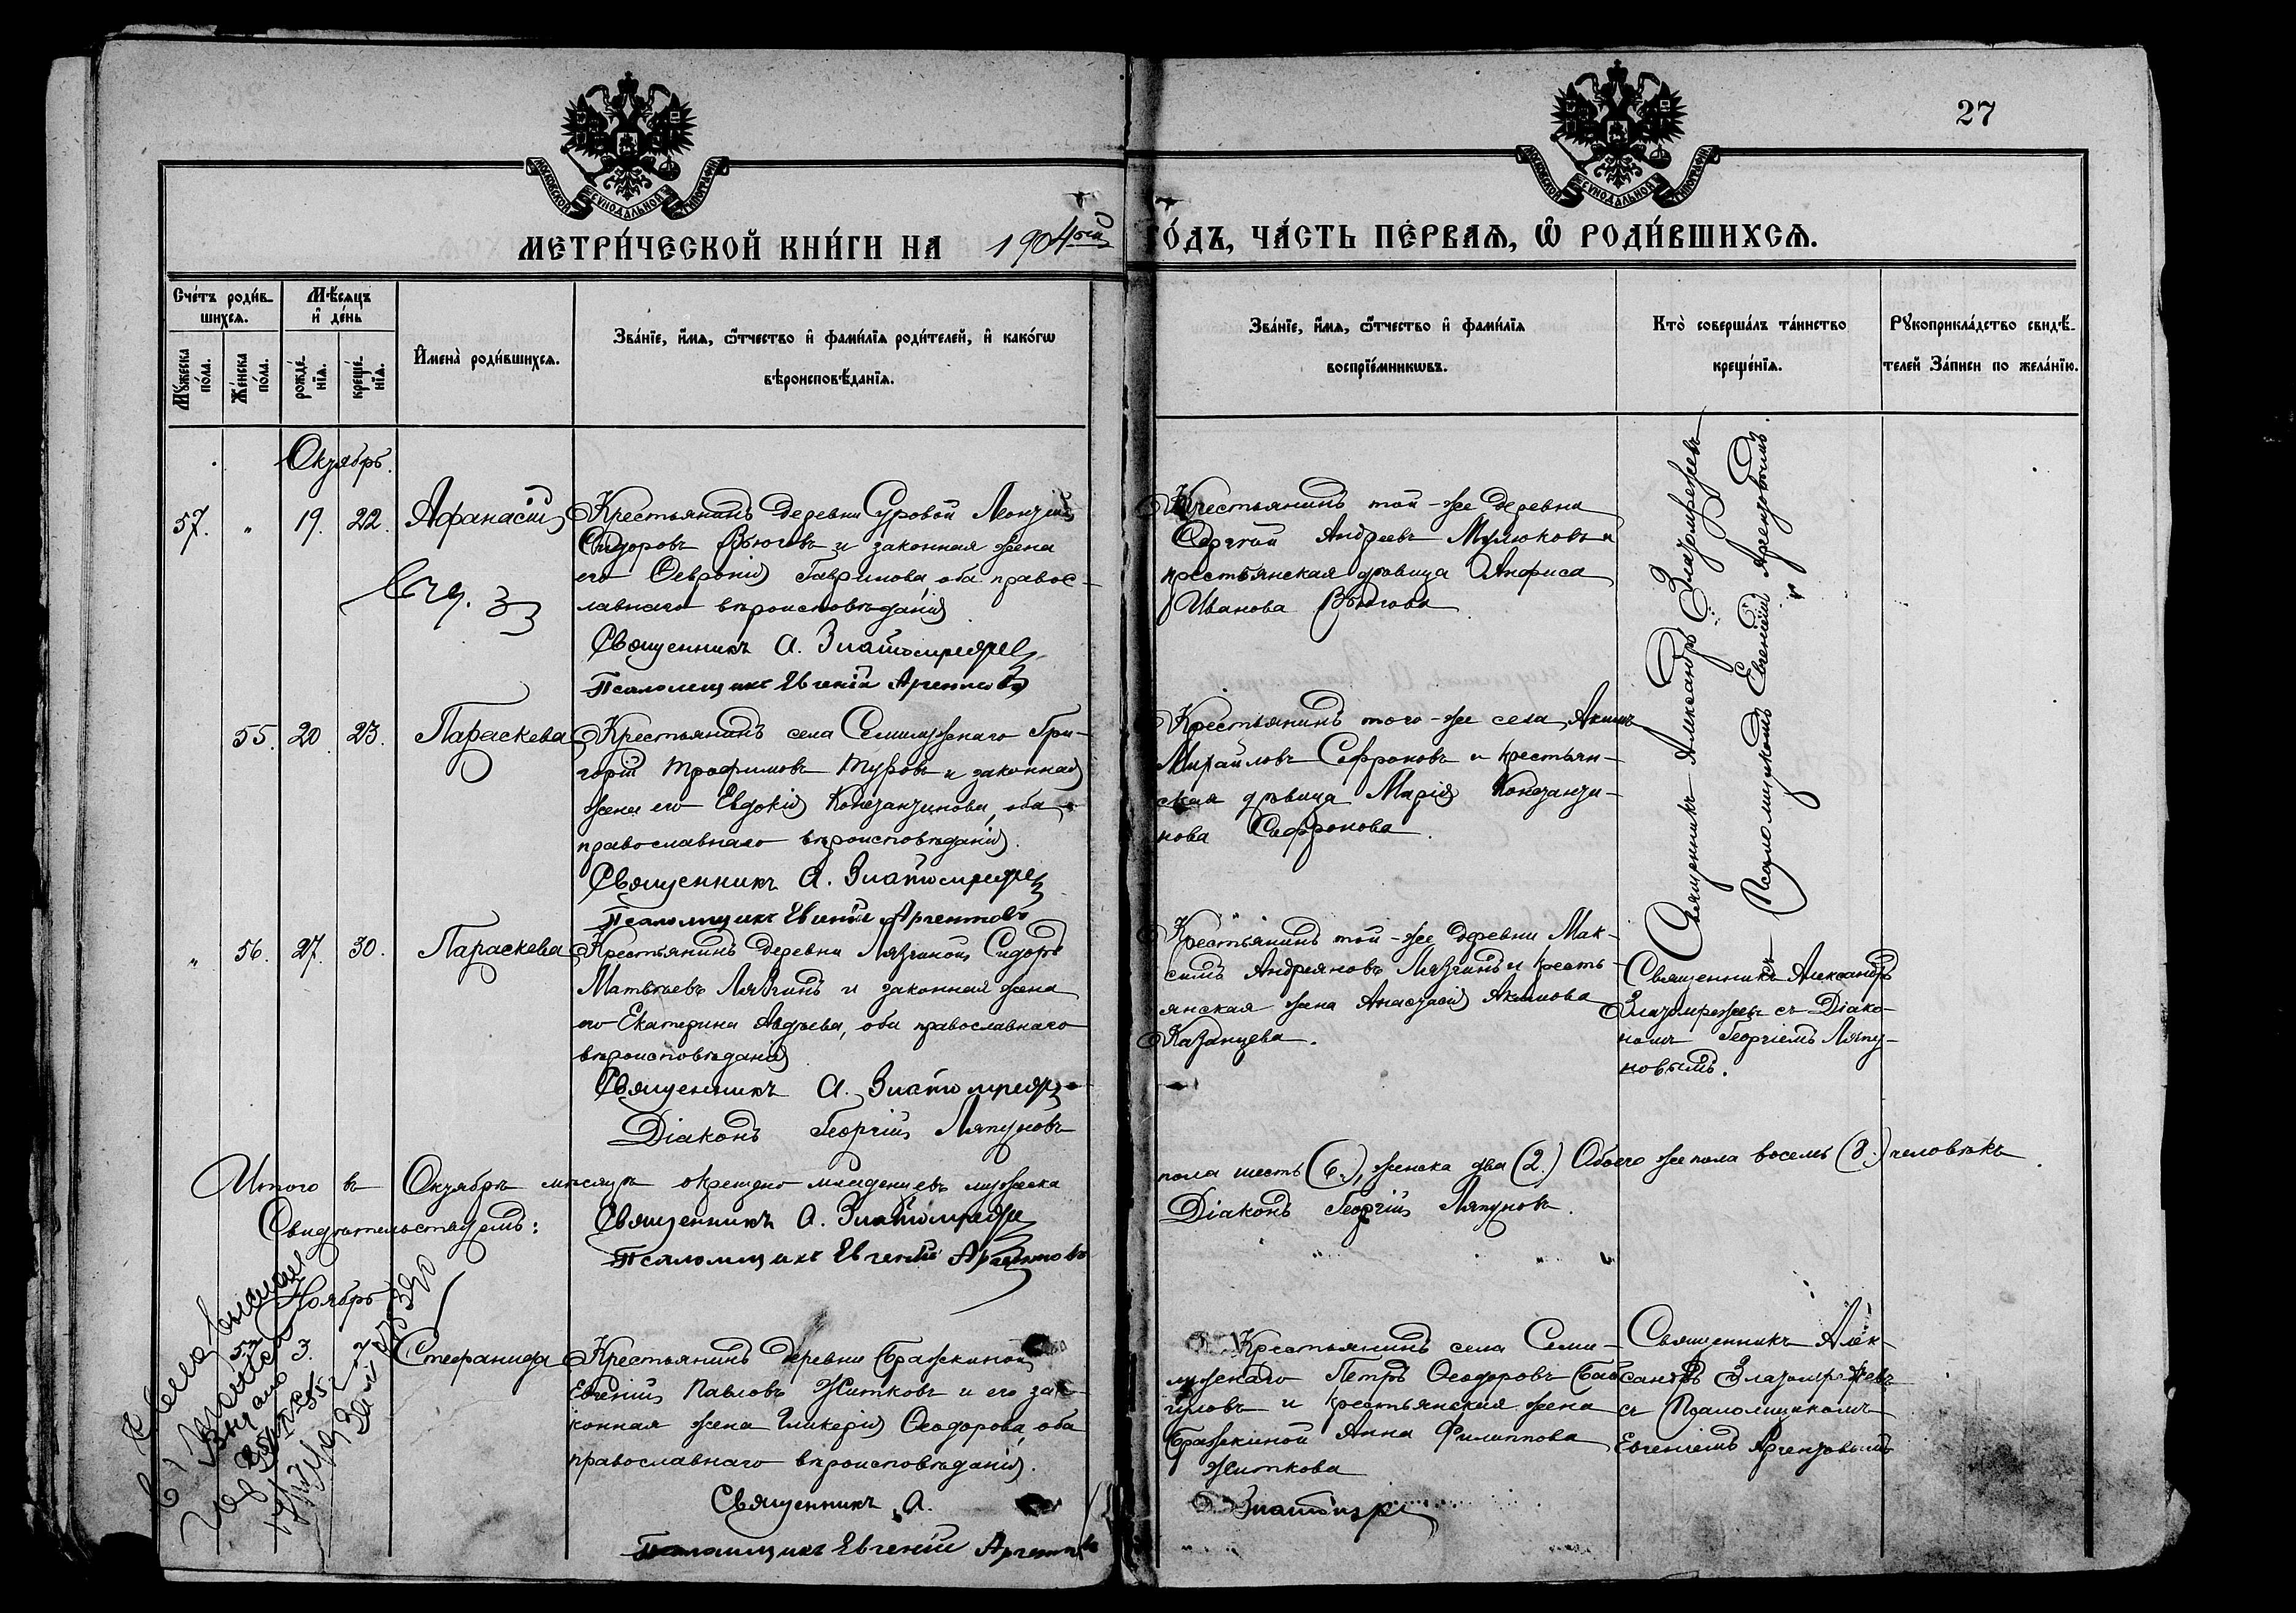 27
МЕТРИ́ЧЕСКОЙ КНИ́ГИ НА 1904ый ГО́ДЪ, ЧА́СТЬ ПЕ́РВАѦ, Ѡ҆ РОДИ́ВШИХСѦ.
Сче́тъ роди́в-
шихсѧ.
Мѣ́сѧцъ
и҆ де́нь
Мꙋ́жеска
по́ла.
Же́нска
по́ла.
рожде́-
нїѧ.
креще́-
нїѧ.
И҆мена̀ роди́вшихсѧ.
Зва́нїе, и҆́мѧ, ѻ҆́тчество и҆ фами́лїѧ роди́телей, и҆ како́гѡ
вѣроисповѣ́данїѧ.
Зва́нїе, и҆́мѧ, ѻ҆́тчество и҆ фами́лїѧ
воспрїе́мникѡвъ.
Кто̀ соверша́лъ та́инство
креще́нїѧ.
Рꙋкоприкла́дство свидѣ́-
телей За́писи по жела́нїю.
Октябрь.
57. " 19. 22. Афанасій
Крестьянинъ деревни Суровой Леонтій
Сидоровъ Вьюговъ и законная жена
его Ѳевронія Гаврилова, оба правос-
лавнаго вѣроисповѣданія
Священникъ А. Златомрежев
Псаломщикъ Евгеній Аргентовъ
Крестьянинъ той-же деревни
Сергѣй Андреевъ Мулюковъ и
крестьянская дѣвица Анфиса
Иванова Вьюгова
Священникъ Александръ Златомрежевъ
съ Псаломщикомъ Евгеніемъ Аргентовымъ.
55. 20 23. Параскева
Крестьянинъ села Семилужнаго Гри-
горій Трофимовъ Туровъ и законная
жена его Евдокія Константинова, оба
православнаго вѣроисповѣданія.
Священникъ А. Златомрежев
Псаломщикъ Евгеній Аргентовъ
Крестьянинъ того-же села Акимъ
Михайловъ Сафроновъ и крестьян-
ская дѣвица Марія Константи-
нова Сафронова.
" 56. 27. 30. Параскева
Крестьянинъ деревни Лязгиной Сидоръ
Матвѣевъ Лязгинъ и законная жена
его Екатерина Авдѣева, оба православнаго
вѣроисповѣданія
Священникъ А. Златомреж
Діаконъ Георгій Ляпуновъ
Крестьянинъ той-же деревни Мак-
симъ Андреяновъ Лязгинъ и кресть-
янская жена Анастасія Акимова
Казанцева.
Священникъ Александръ
Златомрежевъ съ Діако-
номъ Георгіемъ Ляпу-
новымъ.
Итого въ Октябрѣ мѣсяцѣ окрещено младенцевъ мужеска пола шесть (6.), женска два (2.) Обоего же пола восемь (8.) человѣкъ.
Свидѣтельствуемъ: Священникъ А. Златомреже Діаконъ Георгій Ляпуновъ.
Псаломщикъ Евгеній Аргентовъ
Ноябрь
57. 3. Стефанида
Крестьянинъ деревни Бражкиной
Евгеній Павловъ Житковъ и его за-
конная жена Гликерія Ѳеодорова, оба
православнаго вѣроисповѣданія.
Священникъ А. Златомре
Псаломщикъ Евгеній Аргентовъ
Крестьянинъ села Семи-
лужнаго Петръ Ѳеодоровъ
и крестьянская жена
Бражкиной Анна Филиппова
Житкова
Священникъ Алек-
сандръ Златомрежевъ
съ Псаломщикомъ
Евгеніемъ Аргентовымъ